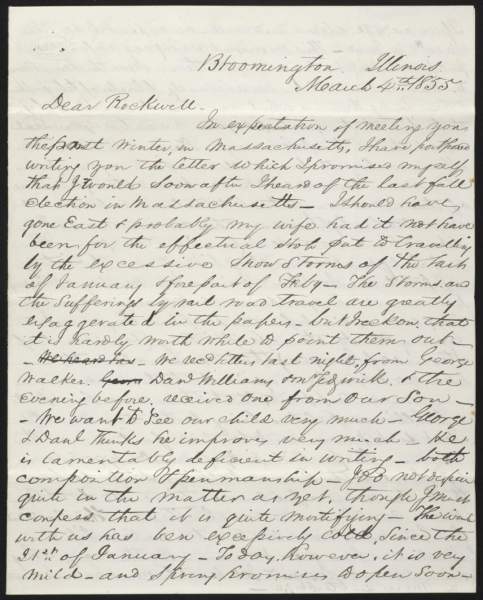 Bloomington Illinois
March 4th. 1855.
Dear Rockwell.
In expectation of meeting you
the past Winter, in Massachusetts, I have postponed
writing you the letter which I promised myself
that I would soon after I heard of the last fall
election in Massachusetts — I should have
gone East & probably my wife had it not have
been for the effectual stop put to travelling
by the excessive Snow Storms of the last
of January & fore part of Feby — The Storms and
the Sufferings by rail road travel are greatly
exaggerated in the papers — but I reckon, that
it is hardly worth while to point them out —
— We heard from — We recd letters last night, from George
Walker. Danl Williams & Mr Sedgwick, & the
evening before, received one from our Son —
— We want to See our child very much — George
& Danl thinks he improves very much — He
is lamentably deficient in writing — both
composition & penmanship — I do not despair
quite in the matter as yet, though I must
confess that it is quite mortifying — The wind
with us has been excessively cold, Since the
21st of January — Today, however, it is very
mild — and Spring promises to open Soon —